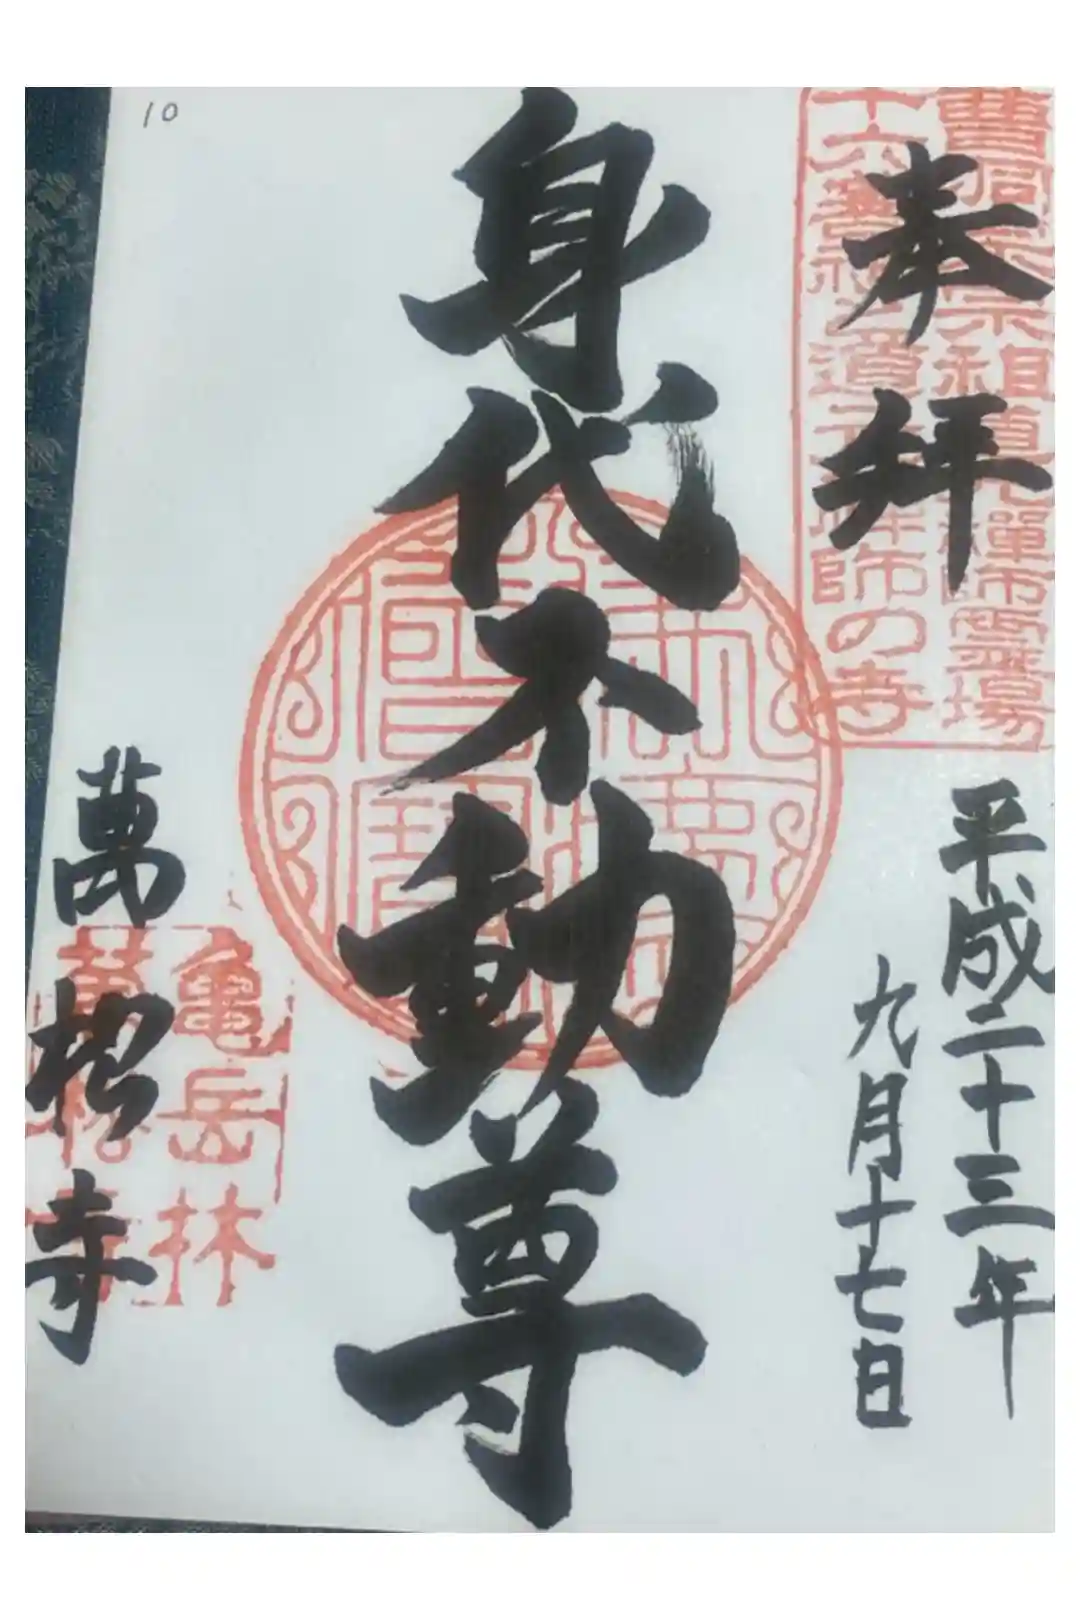 10
奉拝
曹洞宗宗祖道元禅師霊場
十六番 道元禅師の寺
平成二十三年
九月十七日
身代不動尊
亀岳林
萬松寺
萬松寺